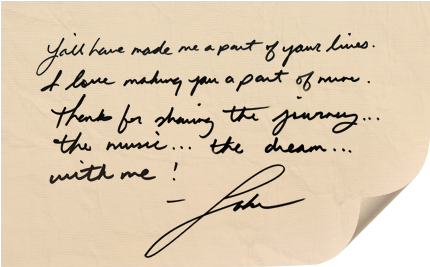 Ya'll have made me a part of your lives.
I love making you a part of mine.
Thanks for sharing the journey...
the music... the dream...
with me!
- John